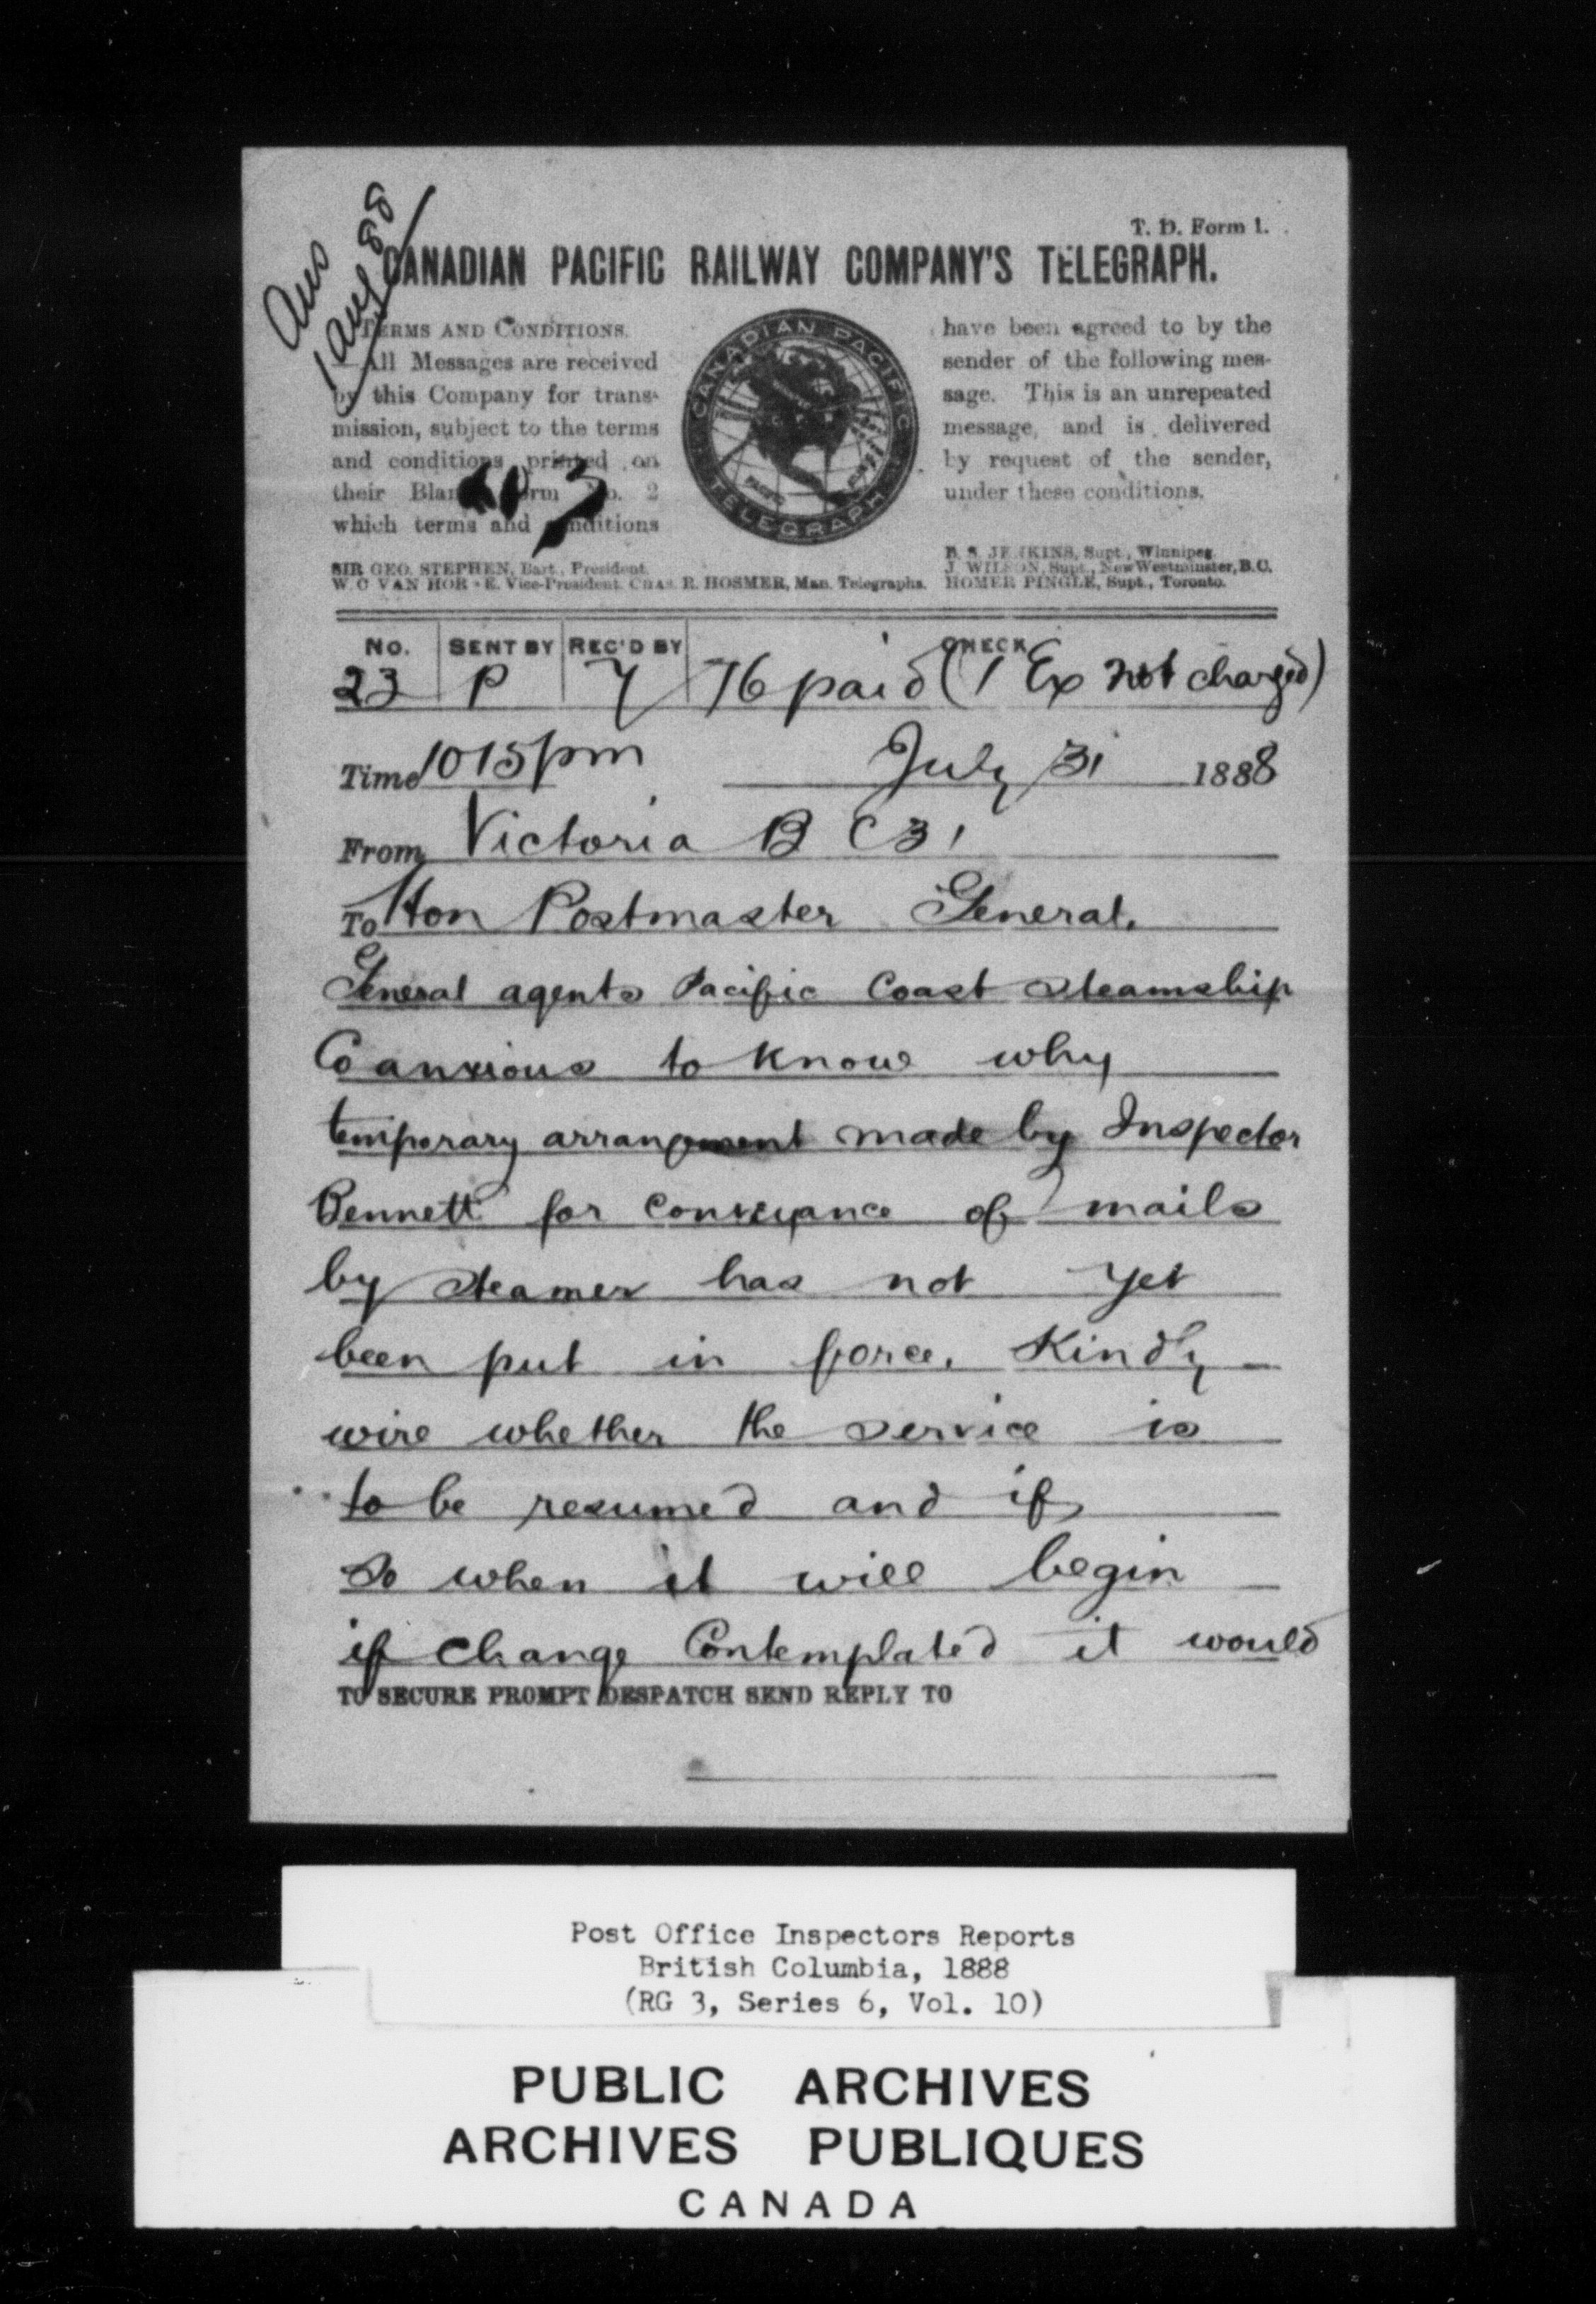 Ans
1 Aug 88
T. D. Form 1.
CANADIAN PACIFIC RAILWAY COMPANY'S TELEGRAPH.
TERMS AND CONDITIONS.
All Messages are received
by this Company for trans-
mission, subject to the terms
and conditions printed on
their Blank Form No. 2
which terms and conditions
CANADIAN PACIFIC
TELEGRAPH
PACIFIC
have been agreed to by the
sender of the following mes-
sage. This is an unrepeated
message, and is delivered
by request of the sender,
under these conditions.
SIR GEO. STEPHEN, Bart., President.
W. C VAN HORNE. Vice-President. CHAS. R. HOSMER, Man. Telegraphs.
B. S. JENKINS, Supt., Winnipeg.
J. WILSON, Supt., New Westminster, B.C.
HOMER PINGLE, Supt., Toronto.
No. SENT BY REC'D BY CHECK
23 P 7 76 paid (1 Ex not charged)
Time 1015pm July 31 1888
From Victoria B C 31
To Hon Postmaster General.
General agents Pacific Coast Steamship
Co anxious to know why
temporary arrangement made by Inspector
Bennett for conveyance of mails
by steamer has not yet
been put in force. Kindly
wire whether the service is
to be resumed and if
so when it will begin
if change Contemplated it would
TO SECURE PROMPT DESPATCH SEND REPLY TO
Post Office Inspectors Reports
British Columbia, 1888
(RG 3, Series 6, Vol. 10)
PUBLIC ARCHIVES
ARCHIVES PUBLIQUES
CANADA